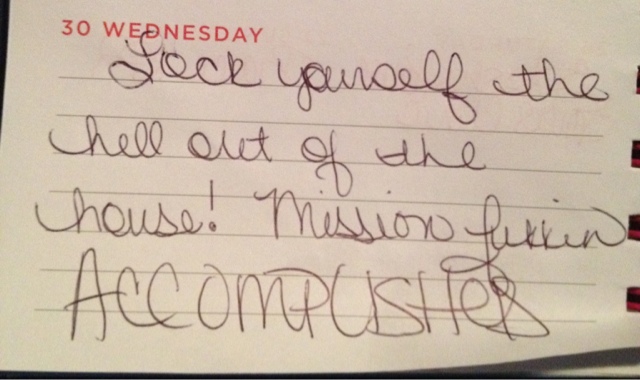 30 WEDNESDAY
Lock yourself the
hell out of the
house! Mission fukkin
ACCOMPLISHED